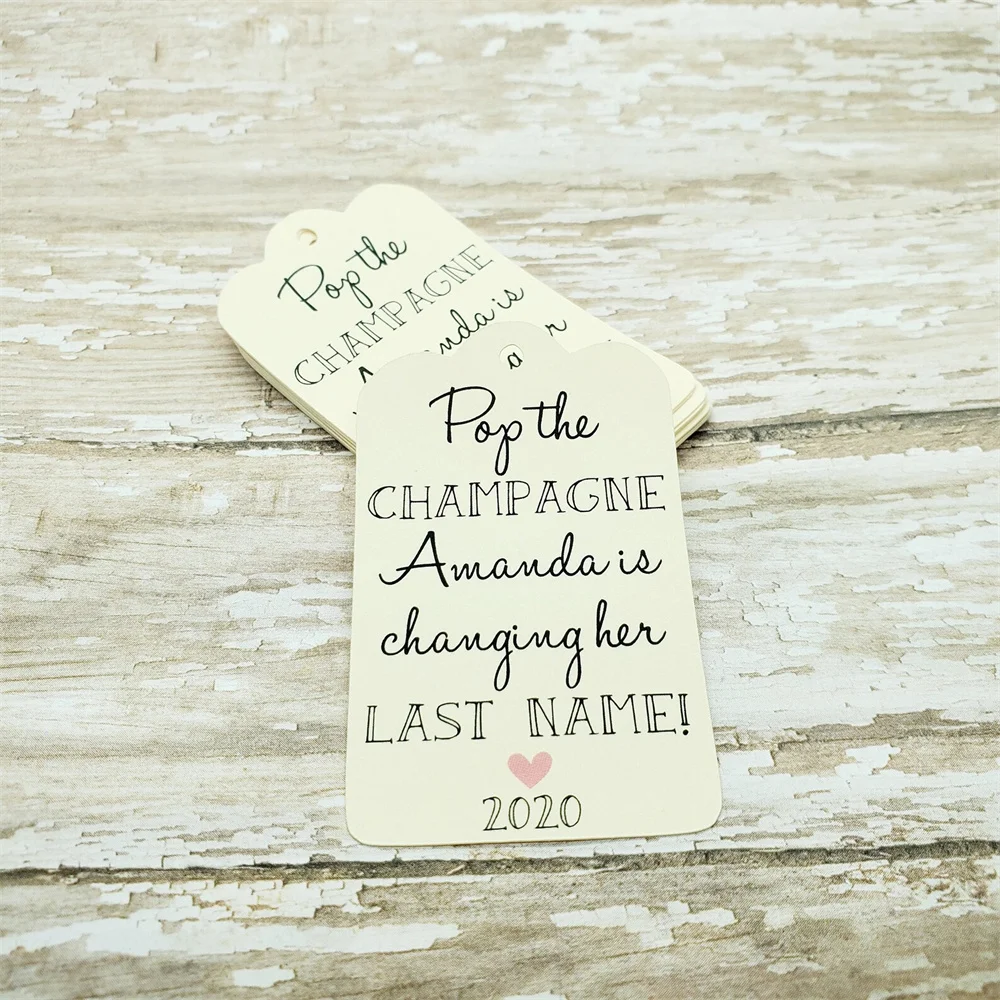 Pop the
CHAMPAGNE
Amanda is
changing her
LAST NAME!
2020
Pop the
CHAMPAGNE